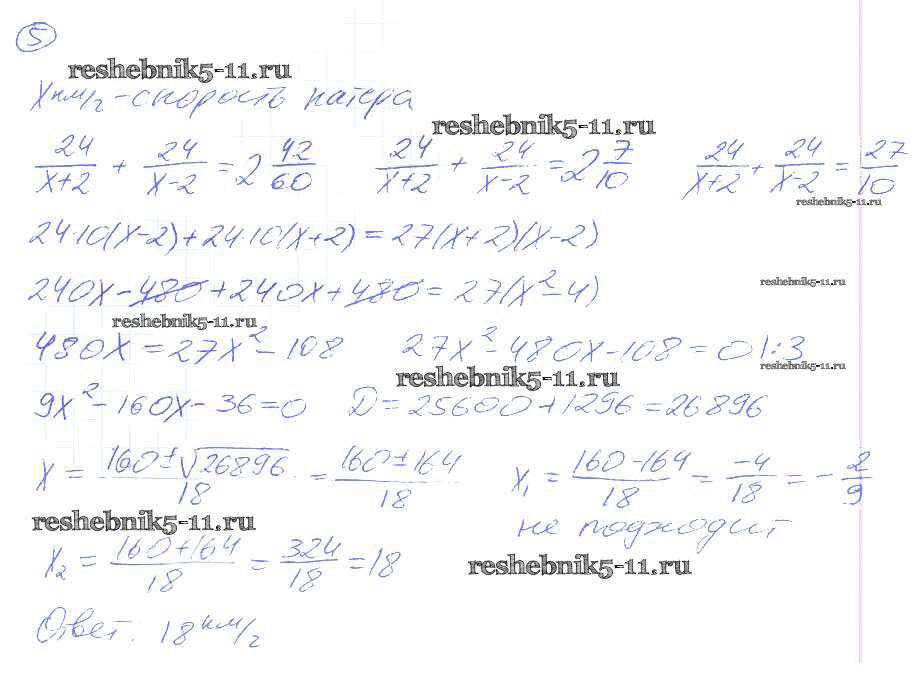 5
reshebnik5-11.ru
x км/г - скорость катера
reshebnik5-11.ru
24/(x+2) + 24/(x-2) = 2 42/60    24/(x+2) + 24/(x-2) = 2 7/10    24/(x+2) + 24/(x-2) = 27/10
reshebnik5-11.ru
24·10(x-2)+24·10(x+2)=27(x+2)(x-2)
reshebnik5-11.ru
240x-480+240x+480=27(x²-4)
reshebnik5-11.ru
480x=27x²-108    27x²-480x-108=0 |:3
reshebnik5-11.ru
reshebnik5-11.ru
9x²-160x-36=0    D=25600+1296=26896
x = (160±√26896)/18 = (160±164)/18    x₁ = (160-164)/18 = -4/18 = -2/9
reshebnik5-11.ru
не подходит
x₂ = (160+164)/18 = 324/18 = 18
reshebnik5-11.ru
Ответ: 18 км/г